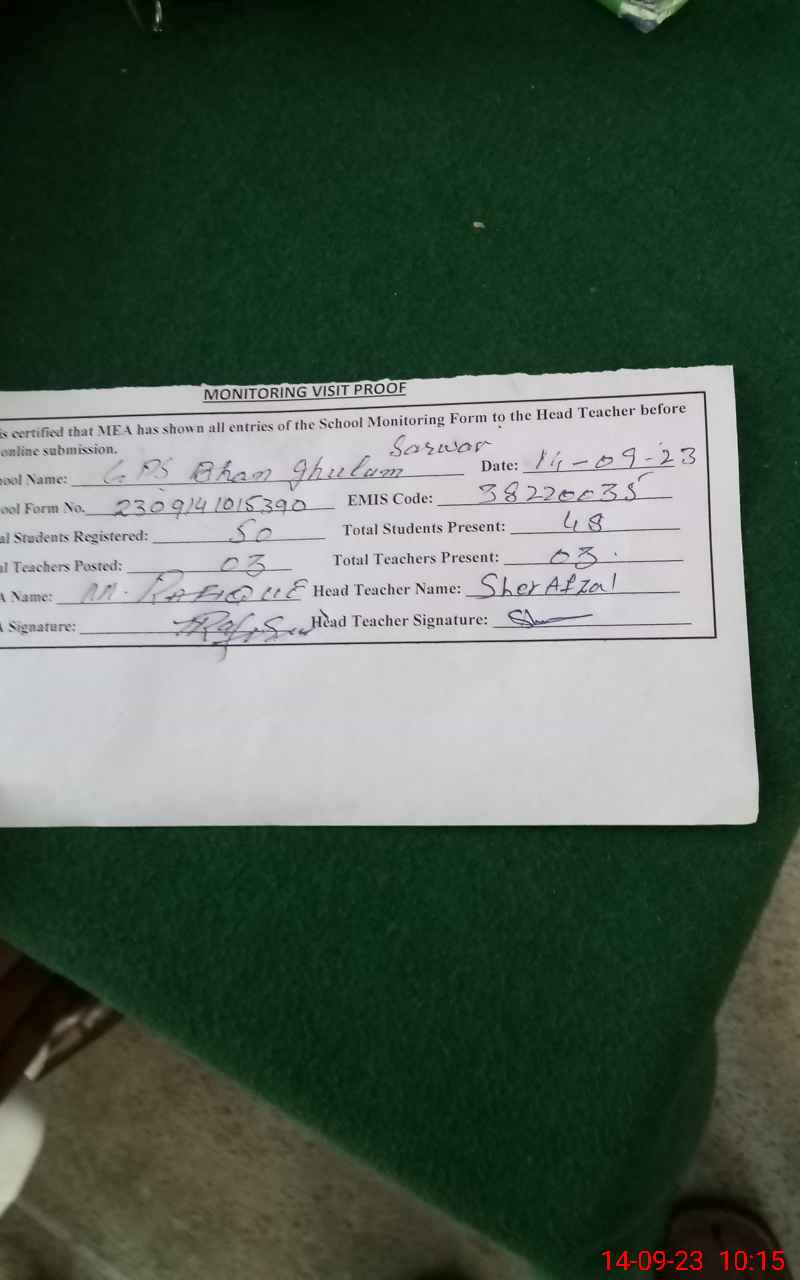 MONITORING VISIT PROOF
is certified that MEA has shown all entries of the School Monitoring Form to the Head Teacher before
online submission.
Sarwar
ool Name: GPS Dhan Ghulam Date: 14-09-23
ool Form No. 2309141015390 EMIS Code: 38220035
al Students Registered: 50 Total Students Present: 48
al Teachers Posted: 03 Total Teachers Present: 03.
A Name: M. RAFIQUE Head Teacher Name: Sher Afzal
A Signature: Head Teacher Signature:
14-09-23 10:15